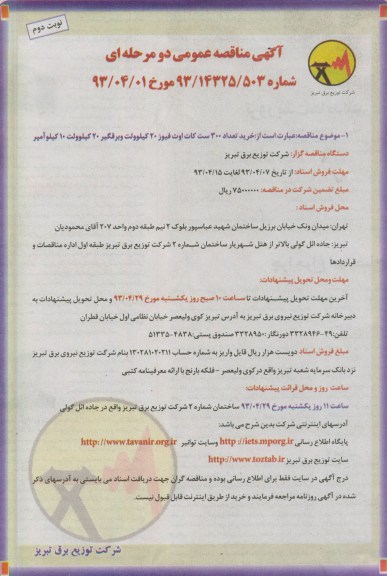 نوبت دوم
آگهی مناقصه عمومی دو مرحله ای
شماره ۹۳/۱۴۳۲۵/۵۰۳ مورخ ۹۳/۰۴/۰۱
شرکت توزیع برق تبریز
۱- موضوع مناقصه: عبارت است از: خرید تعداد ۳۰۰ ست کات اوت فیوز ۲۰ کیلوولت وبرقگیر ۲۰ کیلوولت ۱۰ کیلوآمپر
دستگاه مناقصه گزار: شرکت توزیع برق تبریز
مهلت فروش اسناد: از تاریخ ۹۳/۰۴/۰۷ لغایت ۹۳/۰۴/۱۵
مبلغ تضمین شرکت در مناقصه: ۷۵۰۰۰۰۰۰ ریال
محل فروش اسناد:
تهران: میدان ونک خیابان برزیل ساختمان شهید عباسپور بلوک ۲ نیم طبقه دوم واحد ۲۰۷ آقای محمودیان
تبریز: جاده ائل گولی بالاتر از هتل شهریار ساختمان شماره ۲ شرکت توزیع برق تبریز طبقه اول اداره مناقصات و
قراردادها
مهلت ومحل تحویل پیشنهادات:
آخرین مهلت تحویل پیشنهادات تا ساعت ۱۰ صبح روز یکشنبه مورخ ۹۳/۰۴/۲۹ و محل تحویل پیشنهادات به
دبیرخانه شرکت توزیع نیروی برق تبریز به آدرس تبریز کوی ولیعصر خیابان نظامی اول خیابان قطران
تلفن: ۴۹-۳۳۲۸۹۴۶ دورنگار: ۳۳۲۸۹۵۰ صندوق پستی: ۴۸۳۸-۵۱۳۳۵
مبلغ فروش اسناد دویست هزار ریال قابل واریز به شماره حساب ۱۳۰۲۸۱۰۲۰۲۱۱ بنام شرکت توزیع نیروی برق تبریز
نزد بانک سرمایه شعبه تبریز واقع در کوی ولیعصر - فلکه بارنج با ارائه معرفینامه کتبی
ساعت روز و محل قرائت پیشنهادات:
ساعت ۱۱ روز یکشنبه مورخ ۹۳/۰۴/۲۹ ساختمان شماره ۲ شرکت توزیع برق تبریز واقع در جاده ائل گولی
آدرسهای اینترنتی شرکت بدین شرح می باشد:
پایگاه اطلاع رسانی http://iets.mporg.ir وسایت توانیر http://www.tavanir.org.ir
سایت توزیع برق تبریز http://www.toztab.ir
درج آگهی در سایت فقط برای اطلاع رسانی بوده و مناقصه گران جهت دریافت اسناد می بایستی به آدرسهای ذکر
شده در آگهی روزنامه مراجعه فرمایند و خرید از طریق اینترنت قابل قبول نیست.
شرکت توزیع برق تبریز